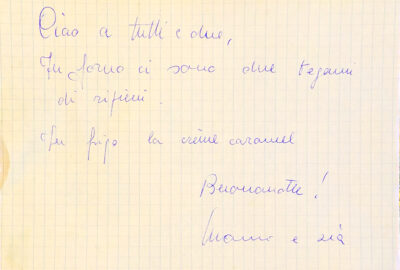 Ciao a tutti e due,
In forno ci sono due tegami
di ripieni.
In frigo la crème caramel
Buonanotte!
Mamma e zià